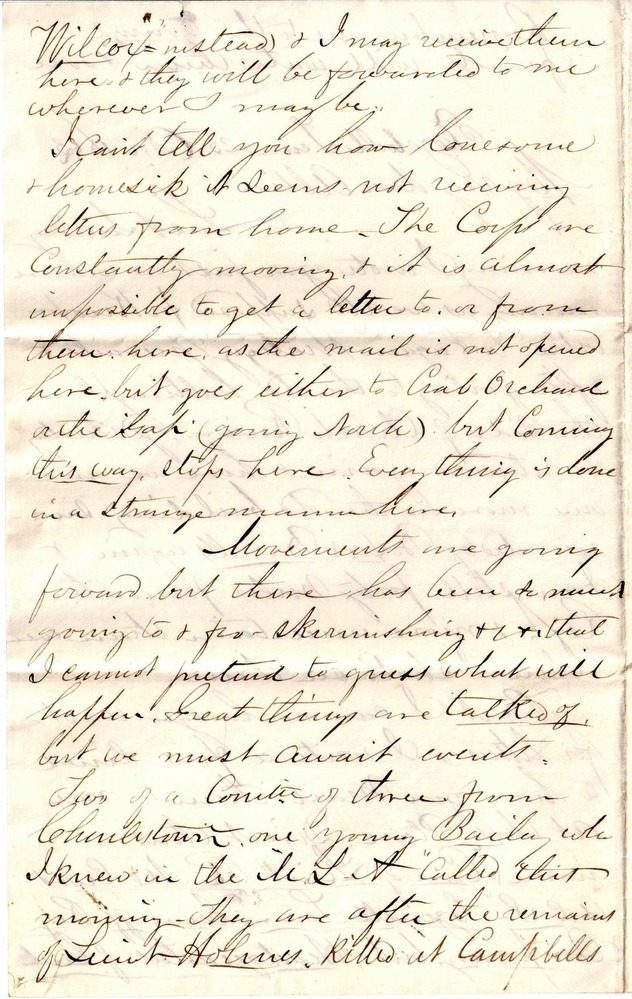 Wilcox" instead) & I may receive them
here & they will be forwarded to me
wherever I may be.
I cant tell you how lonesome
& homesick it seems not receiving
letters from home - The Corps are
Constantly moving, & it is almost
impossible to get a letter to, or from
them here, as the mail is not opened
here, but goes either to Crab Orchard
or the Gap (going North) but Coming
this way, stops here. Everything is done
in a strange manner here.
Movements are going
forward but there has been so much
going to & fro - skirmishing &c &c that
I cannot pretend to guess what will
happen. Great things are talked of,
but we must await events.
Two of a Comtee of three from
Charlestown, one young Bailey who
I knew in the M L A "called" this
morning - They are after the remains
of Lieut Holmes, killed at Campbells